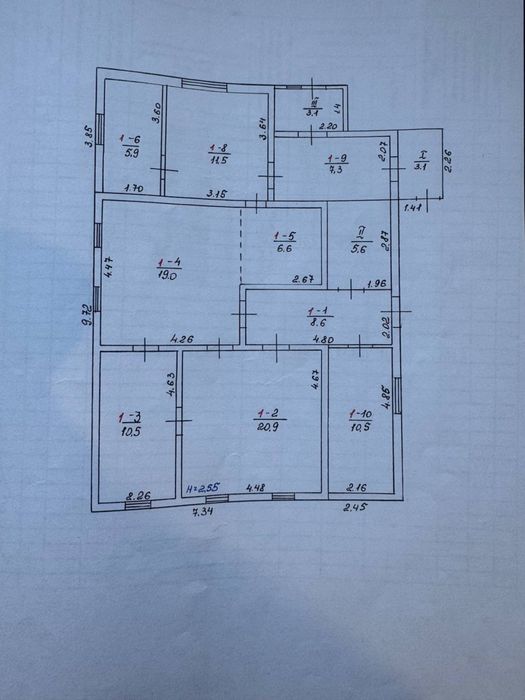 III
3.1
1.4
2.20
3.85
1-6
5.9
3.60
1.70
1-8
11.5
3.64
3.15
1-9
7.3
2.07
I
3.1
2.26
1.41
4.47
1-4
19.0
1-5
6.6
2.67
II
5.6
2.87
1.96
9.72
4.26
1-1
8.6
4.80
2.02
1-3
10.5
4.63
2.26
1-2
20.9
4.67
H=2.55
4.48
1-10
10.5
4.85
2.16
7.34
2.45